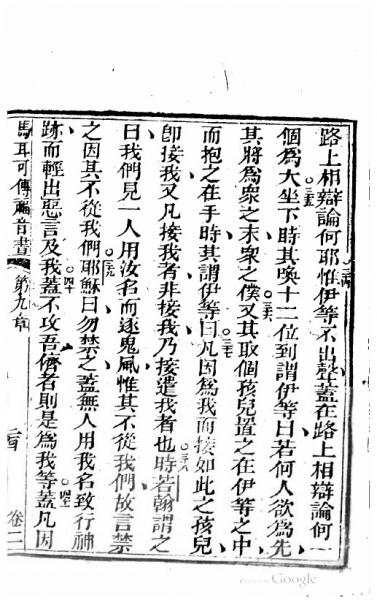 路上相辯論何耶惟伊等不出聲蓋在路上相辯論何一
個為大坐下時其喚十二位到謂伊等曰若何人欲為先
其將為眾之末眾之僕又其取個孩兒置之在伊等之中
而抱之在手時其謂伊等曰凡因為我而接如此之孩兒
卽接我又凡接我者非接我乃接遣我者也時若翰謂之
曰我們見一人用汝名而逐鬼風惟其不從我們故言禁
之因其不從我們耶穌曰勿禁之蓋無人用我名致行神
跡而輕出惡言及我蓋不攻吾儕者則是為我等蓋凡因
馬耳可傳福音書 第九章 卷二
Google